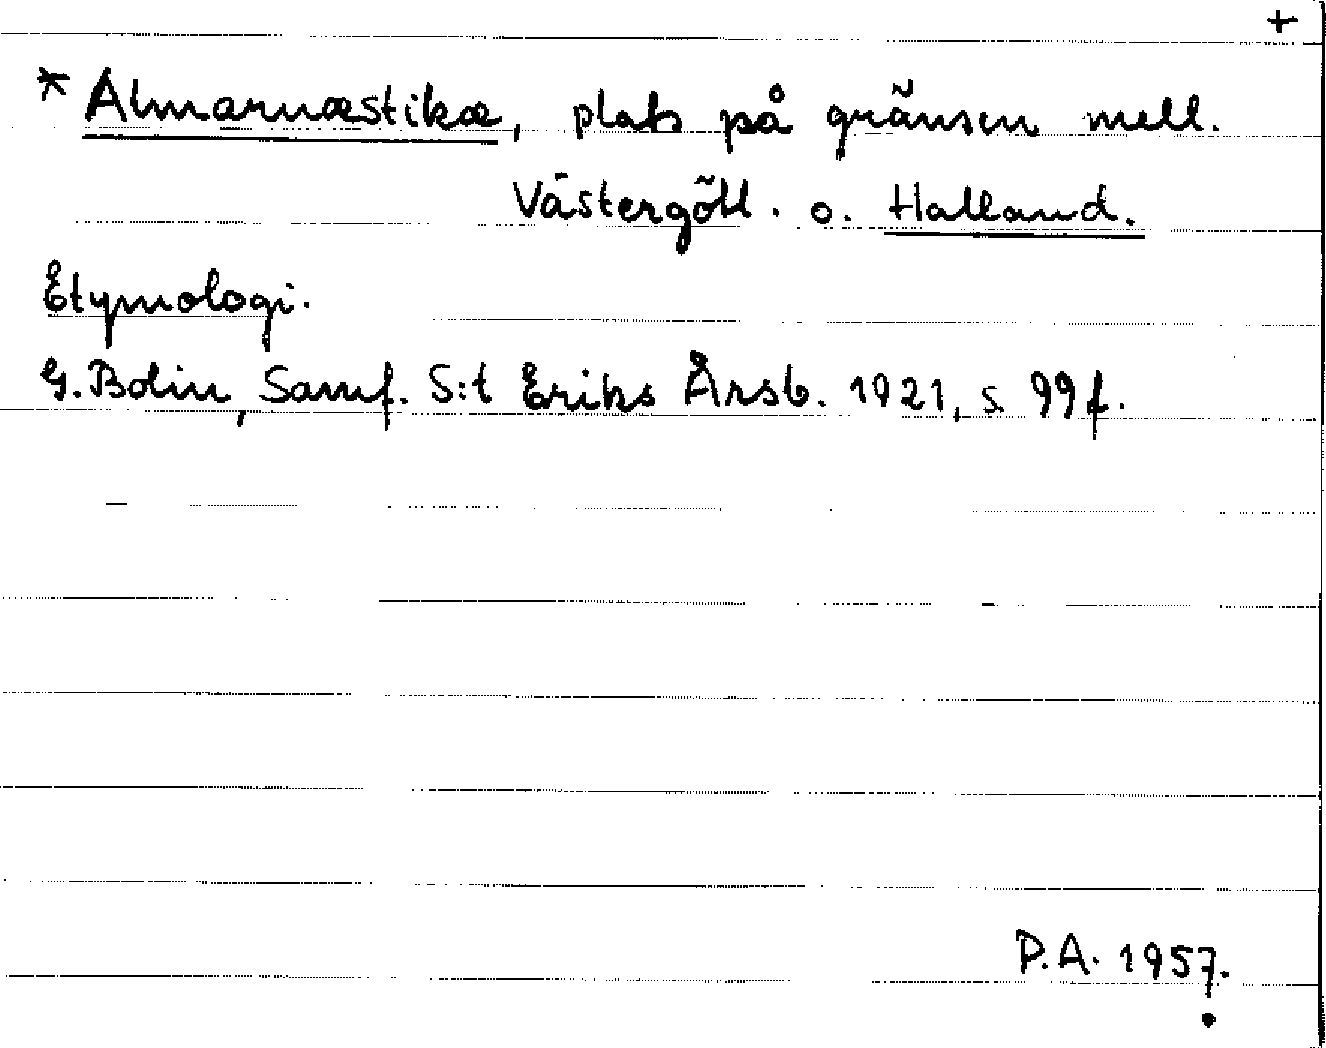 +
* Almarnæstikæ, plats på gränsen mell.
Västergötl. o. Halland.
Etymologi.
G. Bolin, Samf. S:t Eriks Årsb. 1921, s. 99 f.
P.A. 1957.